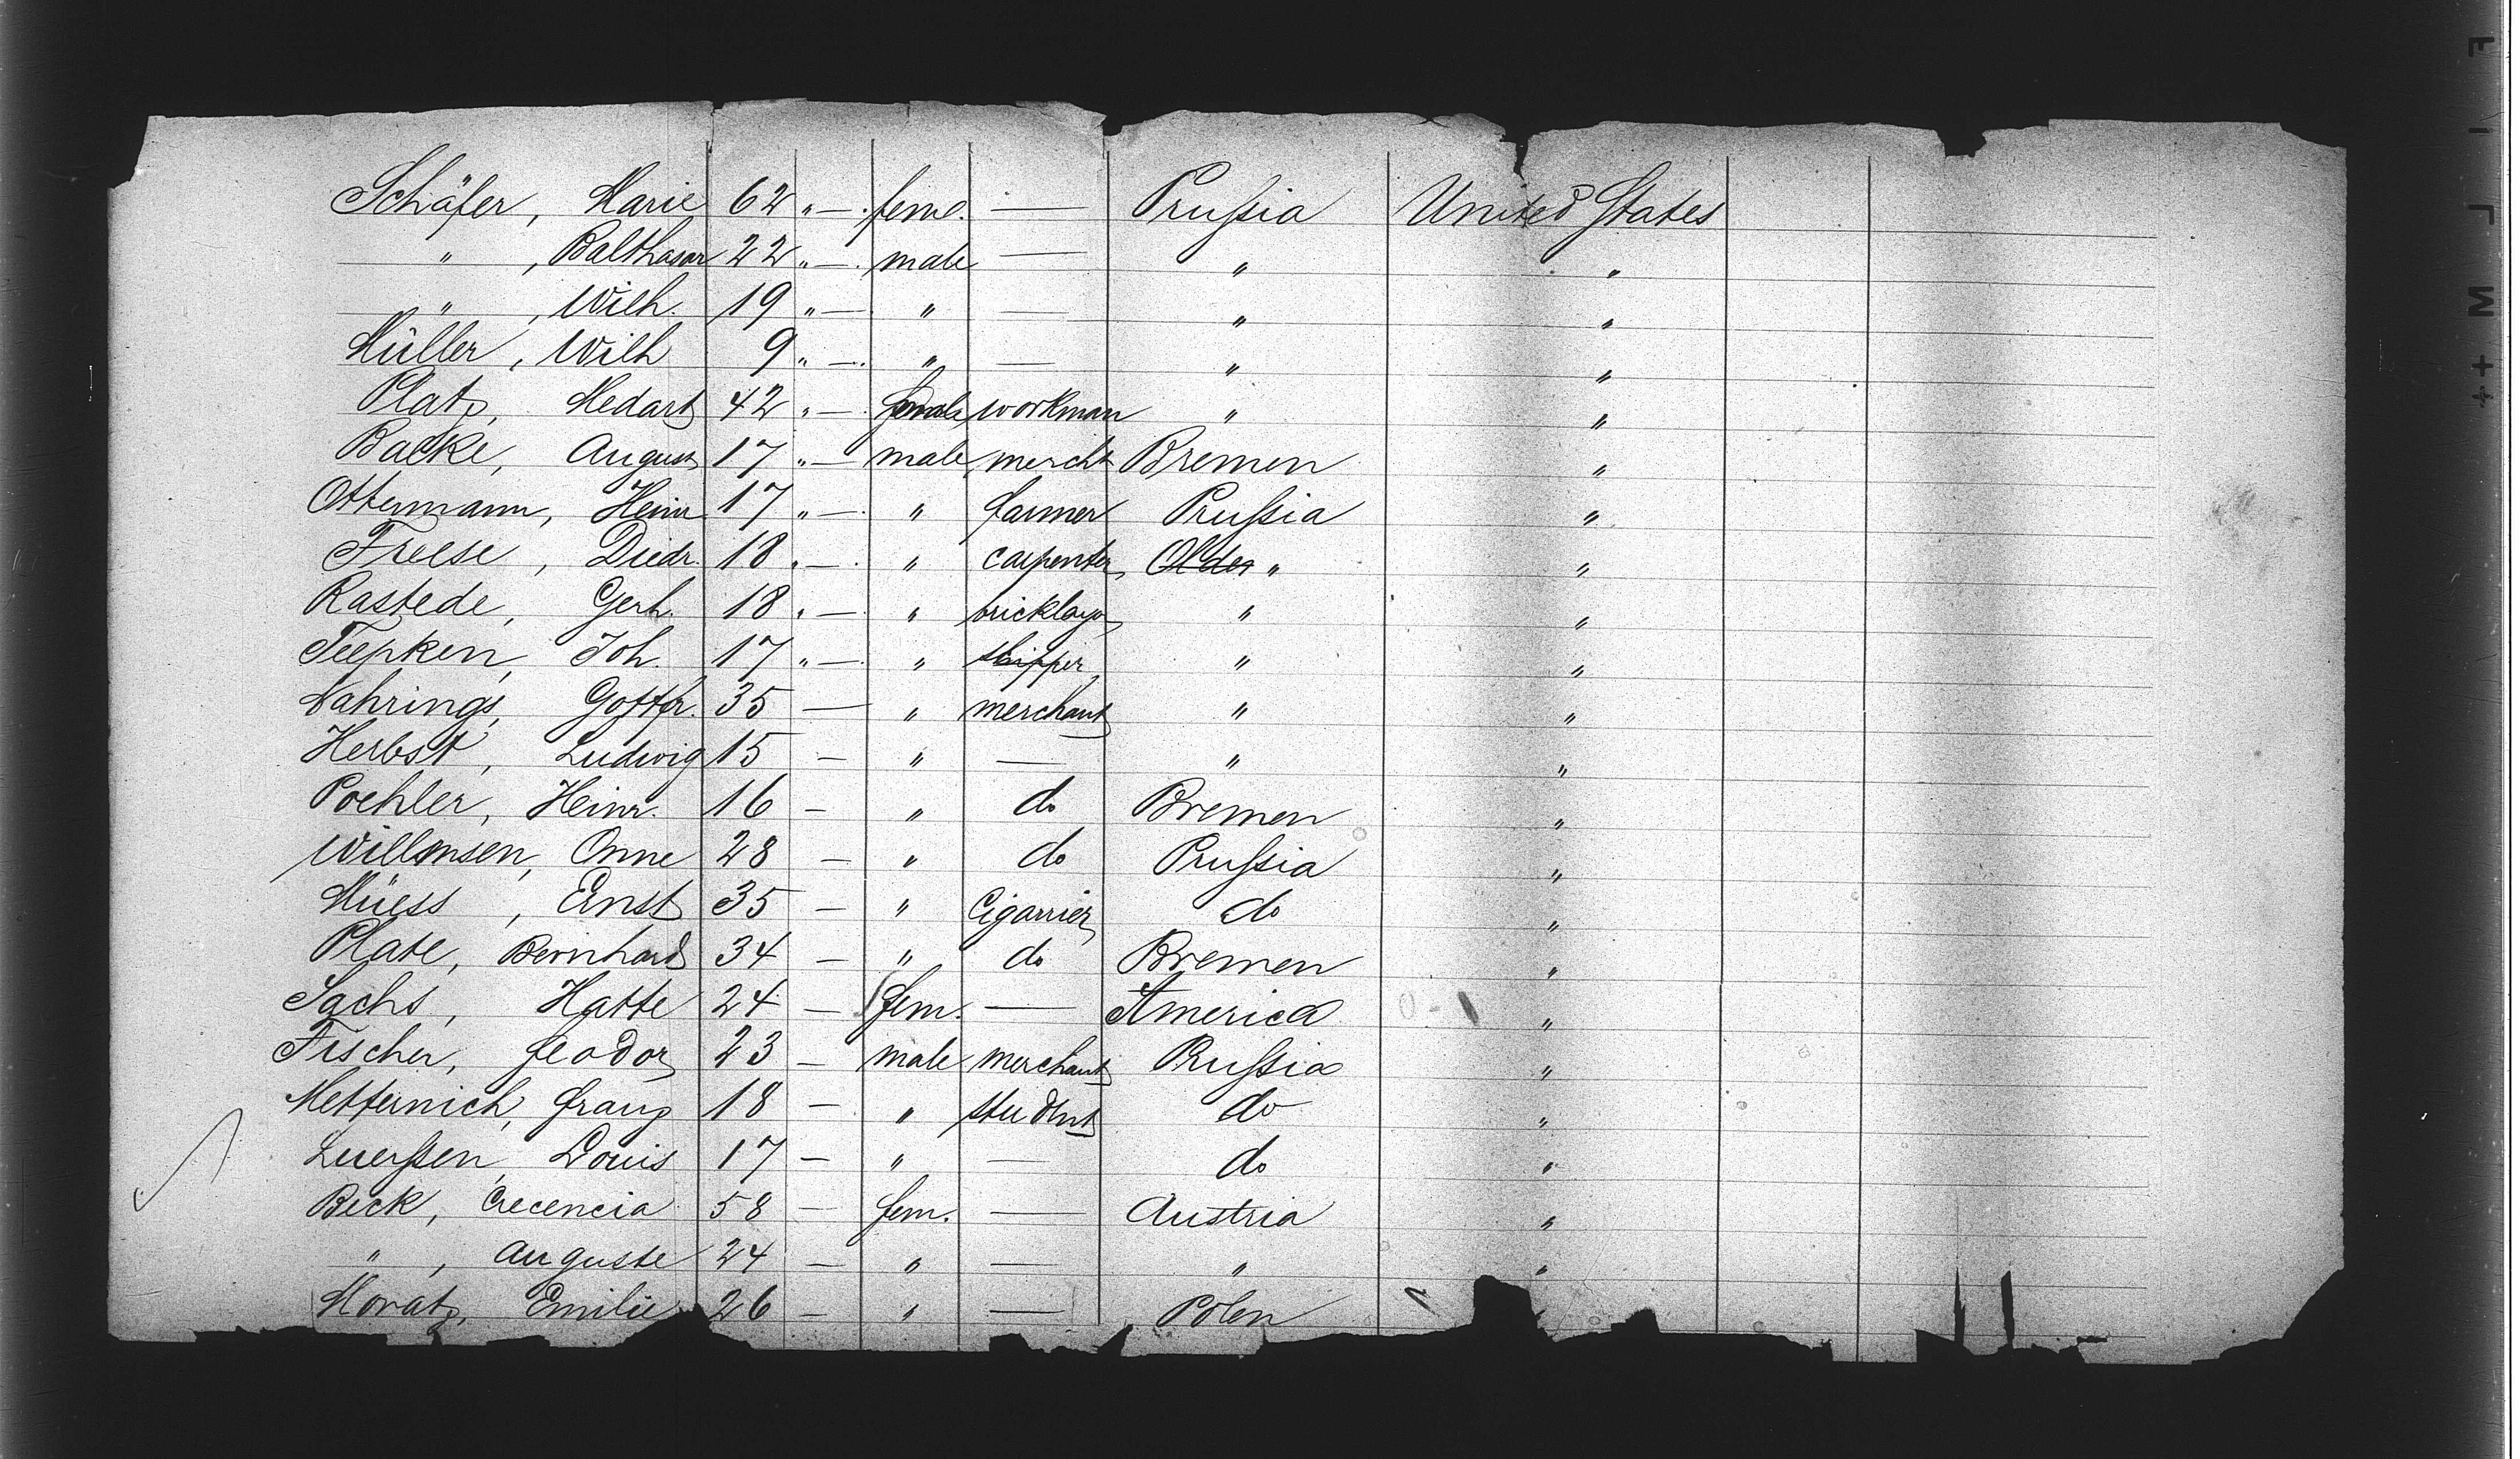 Schäfer, Marie 62 " — . feml. — Prußia United States
" , Balthasar 22 " — . male — " "
" , Wilh. 19 " — " — " "
Müller, Wilh 9 " — . " — " "
Platz, Medart 42 " — . workman " "
Backe, August 17 " — male mercht Bremen "
Ottermann, Heinr 17 " — . " farmer Prußia "
Freese, Diedr. 18 " — . " carpenter Older " "
Rastede, Gerh. 18 " — . " bricklayer " "
Teepken, Joh. 17 " — . " skipper " "
Nahrings, Gottfr. 35 — " merchant " "
Herbst, Ludwig 15 — " — " "
Poehler, Heinr. 16 — " do Bremen "
Willmsen, Onne 28 — " do Prußia "
Müess, Ernst 35 — " Cigarrier do "
Plate, Bernhard 34 — " do Bremen "
Sachs, Hatte 24 — fem. — America "
Fischer, Feodor 23 — male merchant "
Metternich, Franz 18 — " student do "
Luerßen, Louis 17 — " — do "
Beck, Crecencia 58 — fem. — Austria "
" , Auguste 24 — " — " "
Moratz, Emilie 26 — " — Polen "
FILM